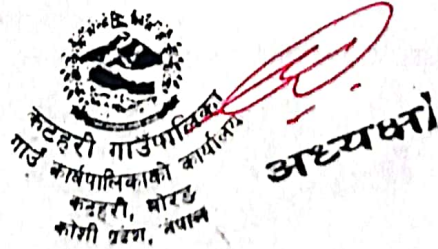 कटहरी गाउँपालिका
गाउँ कार्यपालिकाको कार्यालय
कटहरी, मोरङ
कोशी प्रदेश, नेपाल
अध्यक्ष